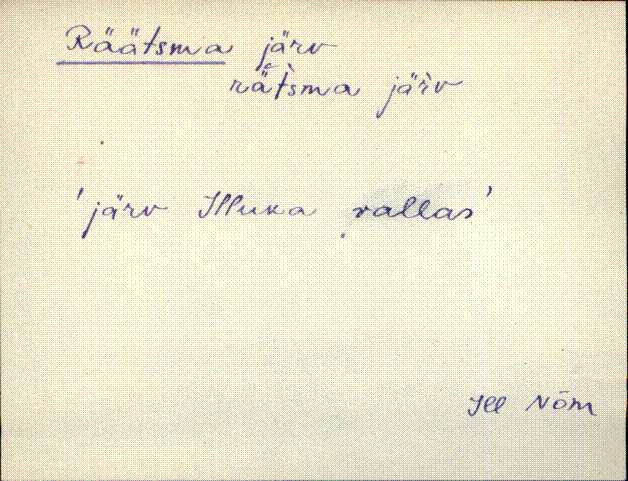 Räätsma järv
rä̆t̀sma jär̀v
'järv Illuka vallas'
Ill Nõm